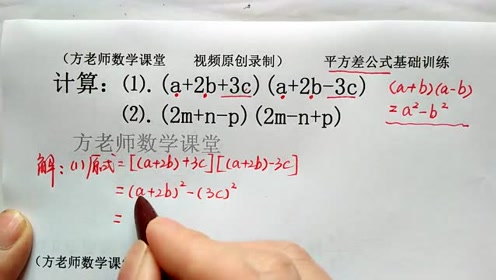 (方老师数学课堂 视频原创录制) 平方差公式基础训练
计算：(1). (a+2b+3c)(a+2b-3c)
(a+b)(a-b)
= a²-b²
(2). (2m+n-p)(2m-n+p)
方老师数学课堂
解：(1)原式=[(a+2b)+3c][(a+2b)-3c]
=(a+2b)²-(3c)²
=
(方老师数学课